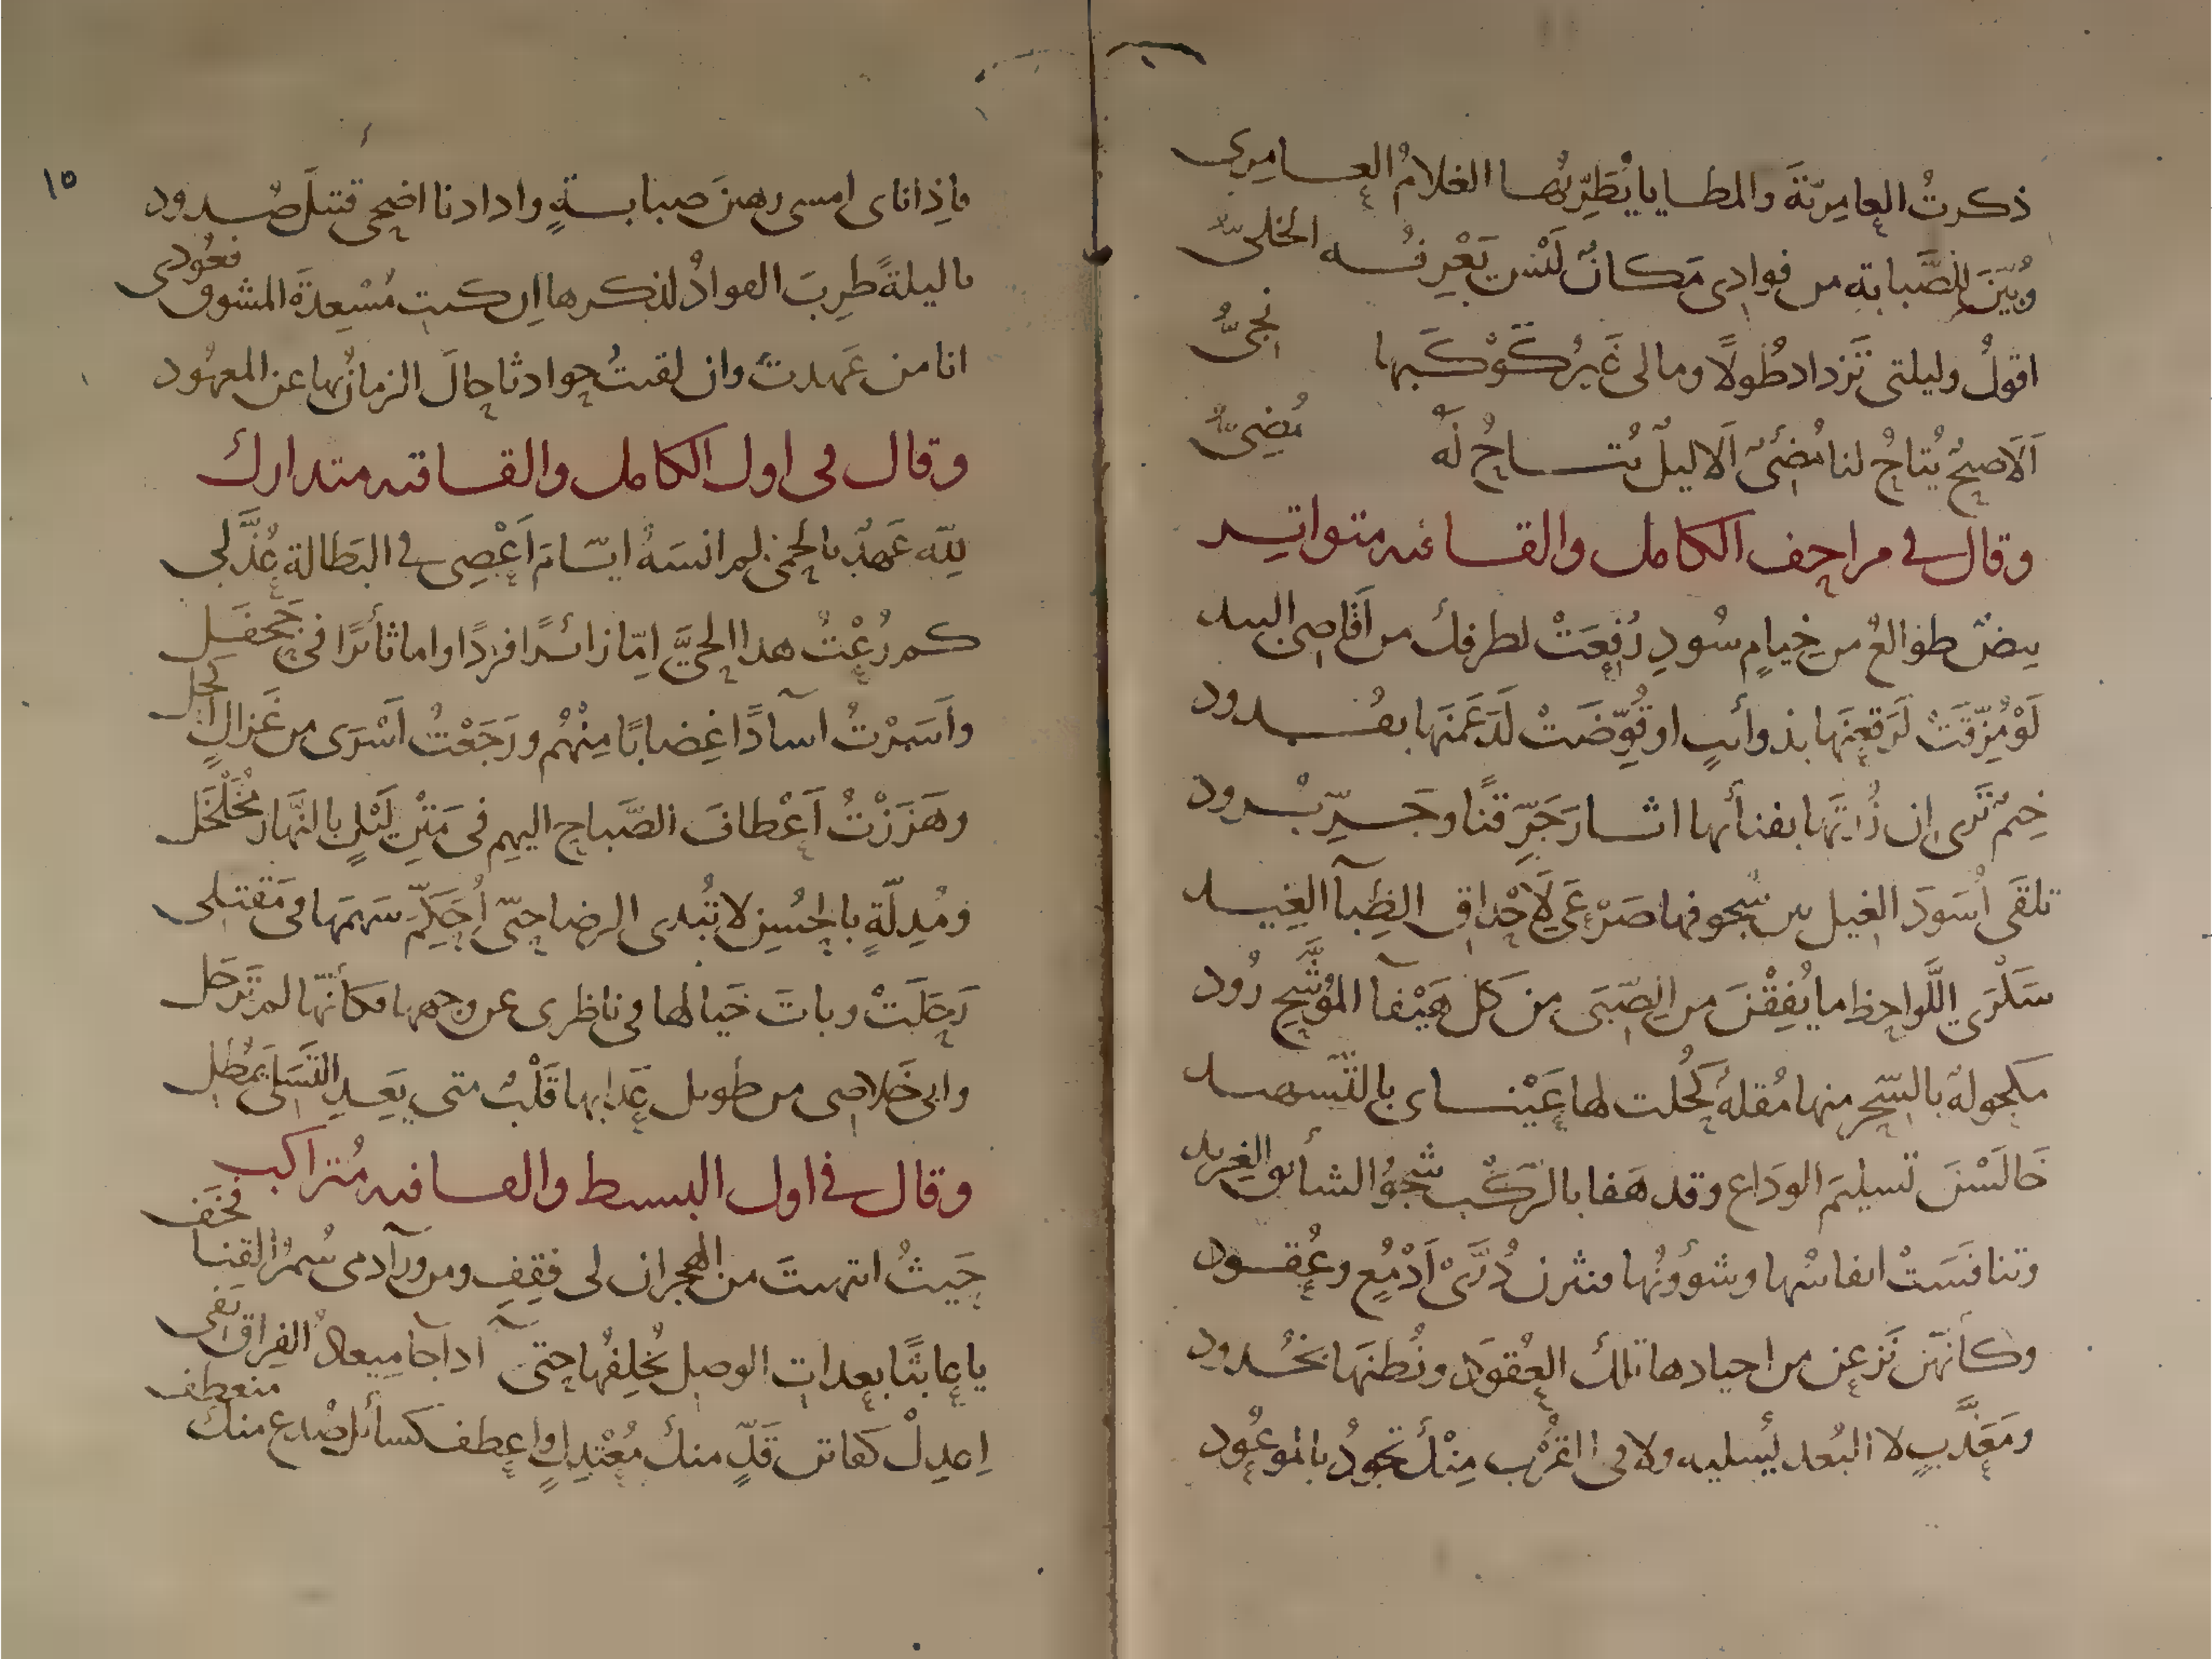 ذكرتُ العامِرِيّةَ والمطايا يُطَرِّبُها الغلامُ العامِرِي
وبُيّنَ للصَّبابةِ من فوادى مَكانٌ لَيْسَ يَعْرِفُه الخَلىُّ
اقولُ وليلتى تَزداد طُولاً ومالى غَيرُ كَوْكَبها نجىُّ
اَلاَ صبحٌ يُتاحُ لنا مُضىٌ اَلا ليلٌ يُتاحُ لَهُ مُضِىُّ
وقال فى مزاحف الكامل والقافيه متواتر
بيضٌ طوالعُ من خِيامٍ سُودِ رُفِعَتْ لطرفك من اَقاصِى البيد
لَوْ مُزِّقَتْ لَرَقعنَها بذوائبٍ او قُوِّضَتْ لَدَعَمنَها بقُدود
خِيَمٌ تَرى ان زُرتَها بفنائها اثار جَرِّ قنًا وجَرِّ بُرود
تلقَى اُسَودَ الغيل بين سُجوفها صَرْعَى لِاَحْداقِ الظِبآ الغِيد
سَكْرَى اللَّواحِظ ما يُفِقْنَ من الصِّبَى من كل هَيْفآ المُوَشَّحِ رُود
مكحولةٌ بالسِّحر منها مُقلةٌ كُحُلت لها عَيْناى بالتَّسهيد
خَالَسْنَ تسليمَ الوَدَاعِ وقد هَفا بالرَّكب شَجْوُ الشائق الغِرّيد
وتنافَسَتْ انفاسُها وشوُونُها فنثرن دُرَّىْ اَدْمُعٍ وعُقود
وكاَنهن نَزعن من اجيادها تلك العُقودَ ونُطنَها بخُدود
ومَعَذَّبٍ لا البُعد يُسليه ولا فى القُرْب مِنْكَ تَجودُ بالموعُود
فاِذا ناى امسى رهينَ صبابةٍ واذا دنا اضحى قتيلَ صُدود
يا ليلةً طرِبَ الفوادُ لذكرها اِن كنتِ مُسْعِدةَ المشوق فعُودى
انا من عَهدتَ وان لقيتُ حوادثا حالَ الزمانُ بها عن المعهُود
وقال فى اول الكامل والقافيه متدارك
لِلّه عَهدٌ بالحِمَى لم انسَهُ ايّامَ اَعْصِى فى البَطالة عُذَّلى
كم رُعْتُ هذا الحىَّ اِمّا زائرًا فردًا واما ثائرًا فى جَحفَلِ
واَسَرْتُ آسادًا غِضابًا مِنْهُم ورَجَعْتُ اَسْرَى من غَزالٍ اكحل
وهَزَزْتُ اَعْطافَ الصَّباحِ اليهم فى مَتْنِ لَيْلٍ بالنَّهار مُخَلْخَل
ومُدِلّةٍ بالحُسنِ لا تُبدى الرضا حتّى اُحَكِّمَ سَهمَها فى مَقتلى
رَحَلَتْ وباتَ خَيالها فى ناظرى عن وجهها فكأنّها لم تَرحَل
وابى خَلاصِى من طويل عَذابها قَلْبٌ متى يَعِدِ التَسَلّى يمْطُلِ
وقال فى اول البسيط والقافيه مُتراكب
حَيثُ انتهيتَ من الهجران لى فقِفِ ومن ورآ دمى سُمرُ القنا فخَف
يا عابثًا بعدات الوصل يُخلِفُها حتى اذا جآ ميعادُ الفِراق يَفى
اِعدِلْ كفاتن قَدٍّ منك مُعْتدلٍ واعطف كسائل صُدغ منك منعطف